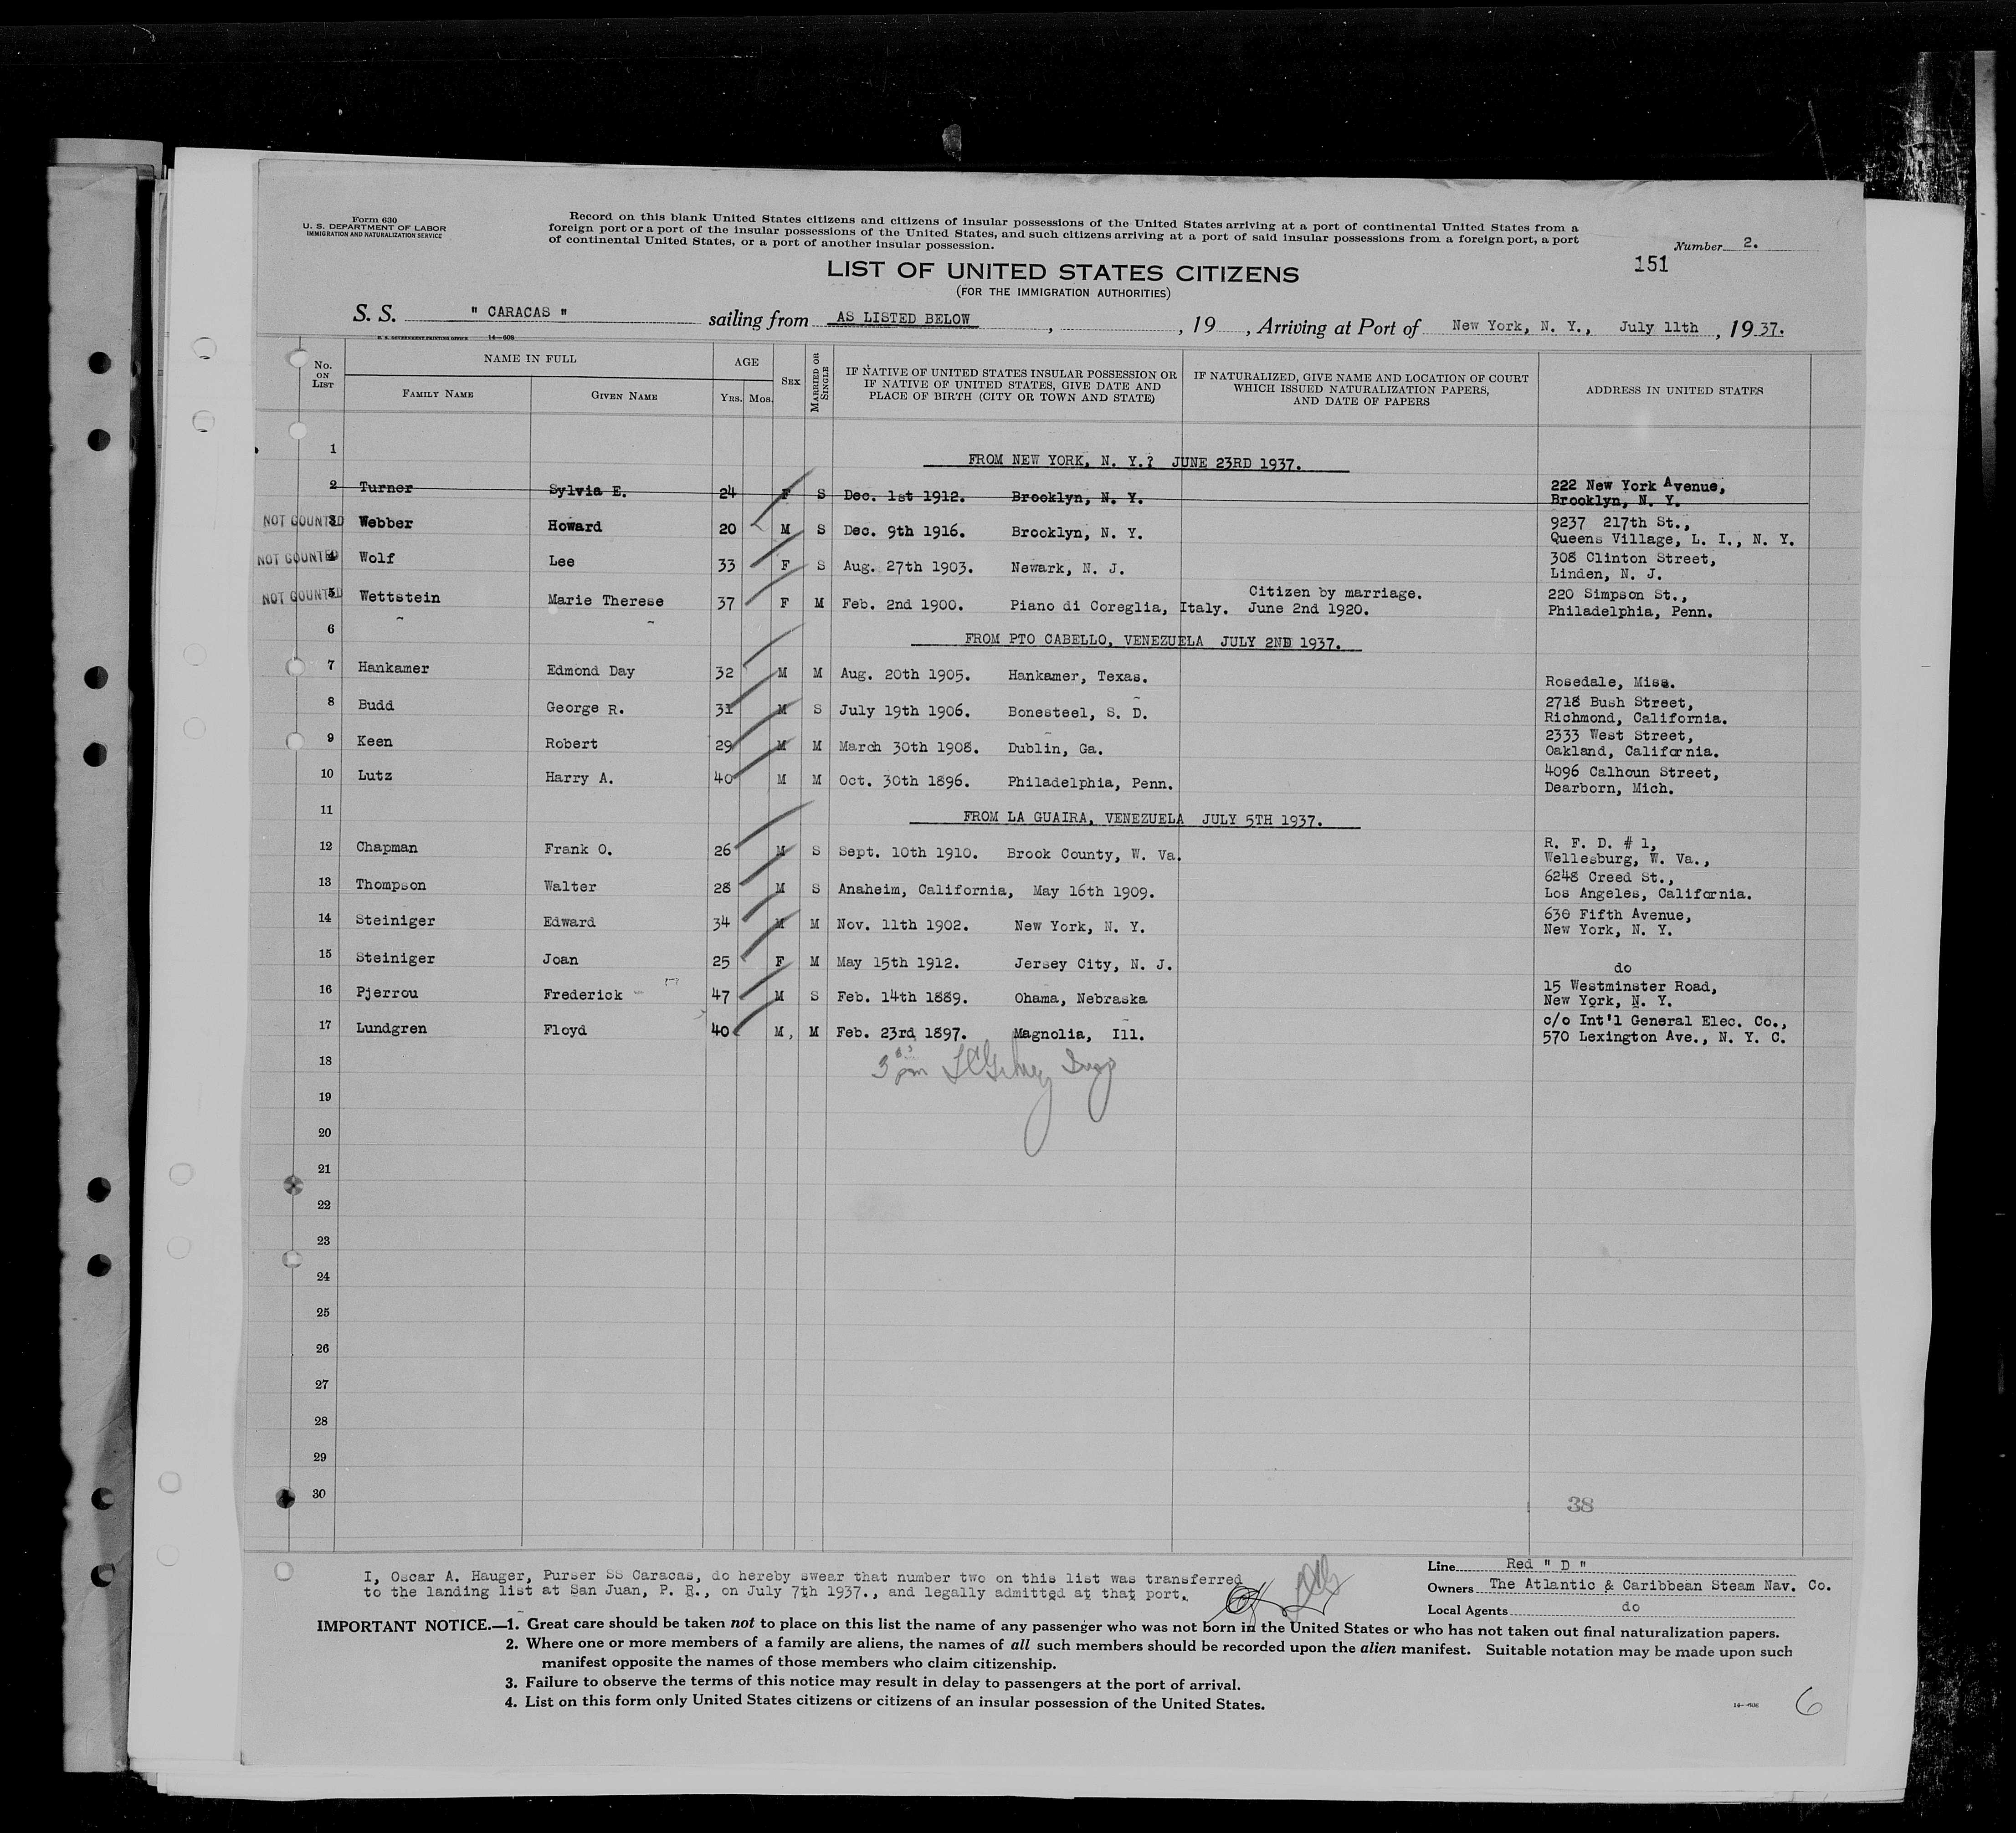 Form 630
U. S. DEPARTMENT OF LABOR
IMMIGRATION AND NATURALIZATION SERVICE
Record on this blank United States citizens and citizens of insular possessions of the United States arriving at a port of continental United States from a
foreign port or a port of the insular possessions of the United States, and such citizens arriving at a port of said insular possessions from a foreign port, a port
of continental United States, or a port of another insular possession.
Number 2.
151
LIST OF UNITED STATES CITIZENS
(FOR THE IMMIGRATION AUTHORITIES)
S. S. " CARACAS " sailing from AS LISTED BELOW , , 19 , Arriving at Port of New York, N. Y., July 11th , 19 37.
U. S. GOVERNMENT PRINTING OFFICE 14—608
No. ON LIST
NAME IN FULL
FAMILY NAME
GIVEN NAME
AGE
YRS. MOS.
SEX
MARRIED OR SINGLE
IF NATIVE OF UNITED STATES INSULAR POSSESSION OR
IF NATIVE OF UNITED STATES, GIVE DATE AND
PLACE OF BIRTH (CITY OR TOWN AND STATE)
IF NATURALIZED, GIVE NAME AND LOCATION OF COURT
WHICH ISSUED NATURALIZATION PAPERS,
AND DATE OF PAPERS
ADDRESS IN UNITED STATES
1 FROM NEW YORK, N. Y.? JUNE 23RD 1937.
2 Turner Sylvia E. 24 F S Dec. 1st 1912. Brooklyn, N. Y. 222 New York Avenue,
Brooklyn, N. Y.
NOT COUNTED 3 Webber Howard 20 M S Dec. 9th 1916. Brooklyn, N. Y. 9237 217th St.,
Queens Village, L. I., N. Y.
NOT COUNTED 4 Wolf Lee 33 F S Aug. 27th 1903. Newark, N. J. 308 Clinton Street,
Linden, N. J.
NOT COUNTED 5 Wettstein Marie Therese 37 F M Feb. 2nd 1900. Piano di Coreglia, Italy. Citizen by marriage. June 2nd 1920. 220 Simpson St.,
Philadelphia, Penn.
6 FROM PTO CABELLO, VENEZUELA JULY 2ND 1937.
7 Hankamer Edmond Day 32 M M Aug. 20th 1905. Hankamer, Texas. Rosedale, Miss.
8 Budd George R. 31 M S July 19th 1906. Bonesteel, S. D. 2718 Bush Street,
Richmond, California.
9 Keen Robert 29 M M March 30th 1908. Dublin, Ga. 2333 West Street,
Oakland, California.
10 Lutz Harry A. 40 M M Oct. 30th 1896. Philadelphia, Penn. 4096 Calhoun Street,
Dearborn, Mich.
11 FROM LA GUAIRA, VENEZUELA JULY 5TH 1937.
12 Chapman Frank O. 26 M S Sept. 10th 1910. Brook County, W. Va. R. F. D. # 1,
Wellesburg, W. Va.,
13 Thompson Walter 28 M S Anaheim, California, May 16th 1909. 6248 Creed St.,
Los Angeles, California.
14 Steiniger Edward 34 M M Nov. 11th 1902. New York, N. Y. 630 Fifth Avenue,
New York, N. Y.
15 Steiniger Joan 25 F M May 15th 1912. Jersey City, N. J. do
16 Pjerrou Frederick 47 M S Feb. 14th 1889. Ohama, Nebraska 15 Westminster Road,
New York, N. Y.
17 Lundgren Floyd 40 M, M Feb. 23rd 1897. Magnolia, Ill. c/o Int'l General Elec. Co.,
570 Lexington Ave., N. Y. C.
18
19
20
21
22
23
24
25
26
27
28
29
30
38
I, Oscar A. Hauger, Purser SS Caracas, do hereby swear that number two on this list was transferred
to the landing list at San Juan, P. R., on July 7th 1937., and legally admitted at that port.
Line Red " D "
Owners The Atlantic & Caribbean Steam Nav. Co.
Local Agents do
IMPORTANT NOTICE.—1. Great care should be taken not to place on this list the name of any passenger who was not born in the United States or who has not taken out final naturalization papers.
2. Where one or more members of a family are aliens, the names of all such members should be recorded upon the alien manifest. Suitable notation may be made upon such
manifest opposite the names of those members who claim citizenship.
3. Failure to observe the terms of this notice may result in delay to passengers at the port of arrival.
4. List on this form only United States citizens or citizens of an insular possession of the United States.
14—608
6